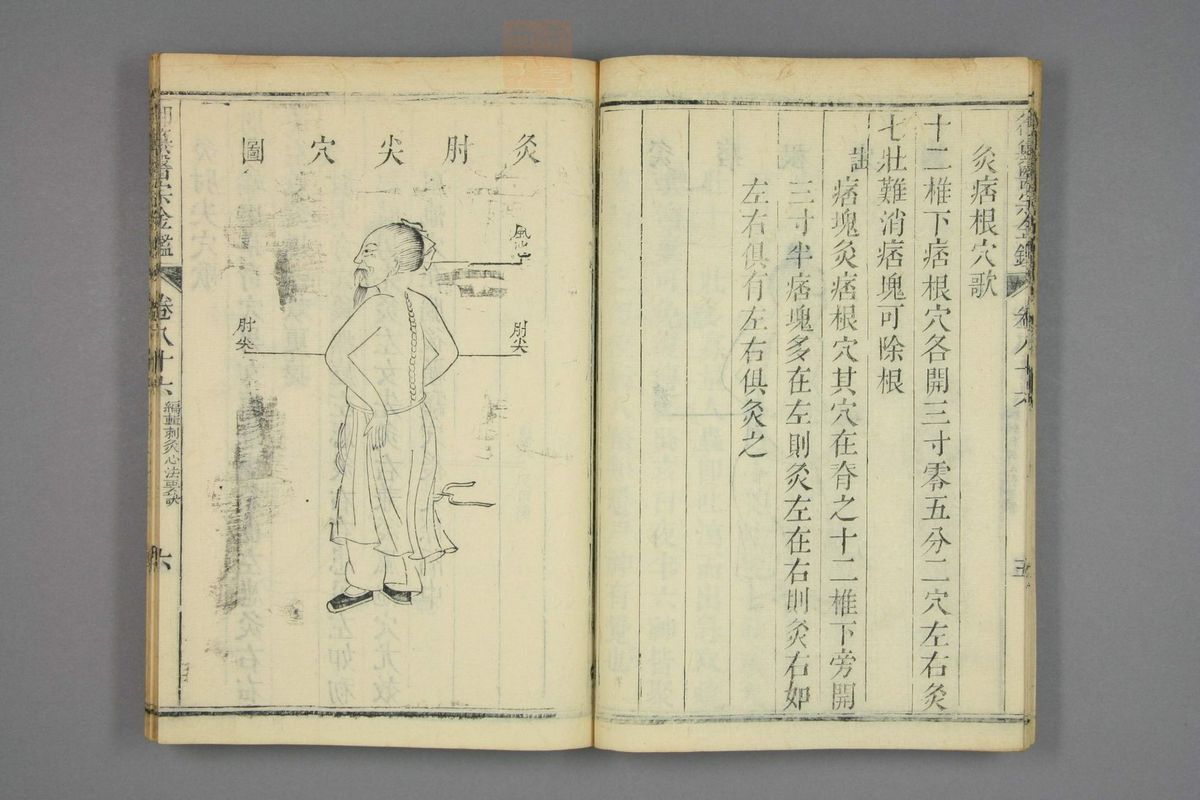 灸痞根穴歌
十二椎下痞根穴各開三寸零五分二穴左右灸
七壯難消痞塊可除根
註
痞塊灸痞根穴其穴在脊之十二椎下旁開
三寸半痞塊多在左則灸左在右則灸右如
左右俱有左右俱灸之
灸肘尖穴圖
風池穴
肘尖
肘尖
御纂醫宗金鑑
卷八十六
編輯刺灸心法要訣
六